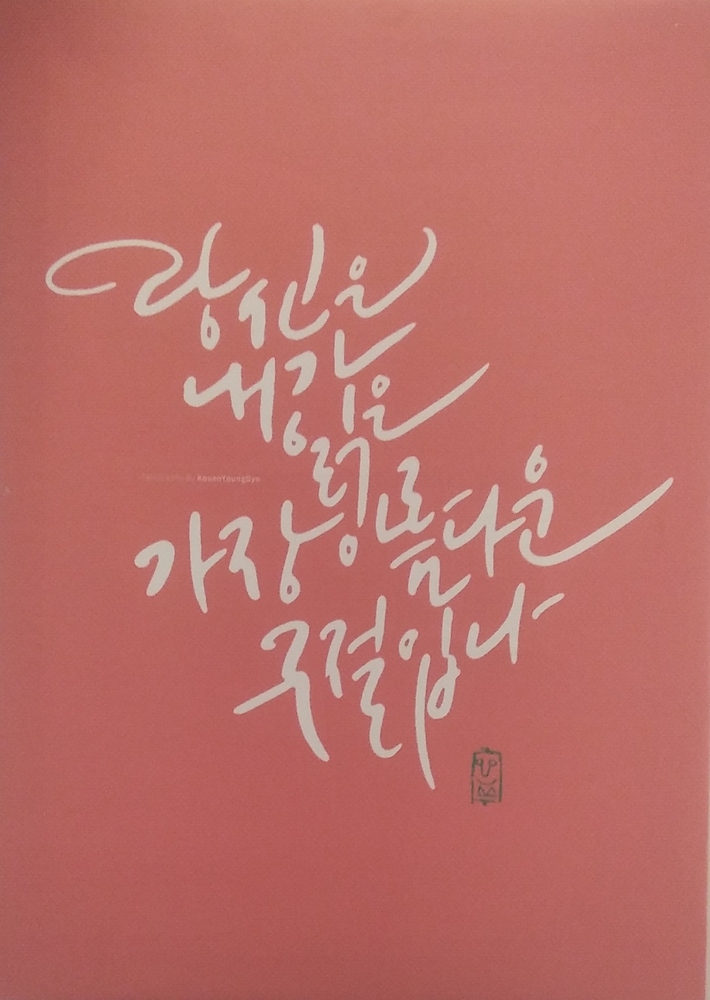 당신은
내가
읽은
가장 아름다운
구절입니다
Calligraphy by